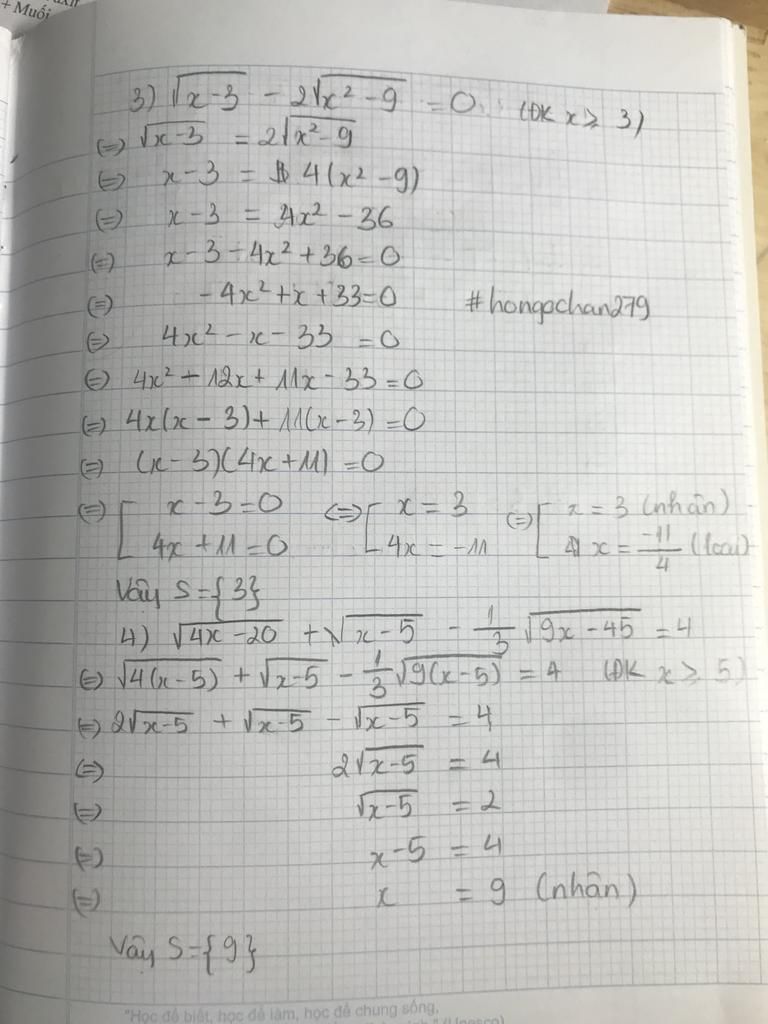 + Muối
3) √(x-3) - 2√(x² - 9) = 0. (ĐK x ≥ 3)
(=) √(x-3) = 2√(x²-9)
(=) x-3 = 4(x² - 9)
(=) x-3 = 4x² - 36
(=) x-3 - 4x² + 36 = 0
(=) -4x² + x + 33 = 0 #hongochan279
(=) 4x² - x - 33 = 0
(=) 4x² - 12x + 11x - 33 = 0
(=) 4x(x - 3) + 11(x - 3) = 0
(=) (x - 3)(4x + 11) = 0
(=) [ x - 3 = 0 (=) [ x = 3 (=) [ x = 3 (nhận)
4x + 11 = 0 4x = -11 x = -11/4 (loại)
Vậy S = {3}
4) √(4x - 20) + √(x - 5) - 1/3 √(9x - 45) = 4
(=) √(4(x-5)) + √(x-5) - 1/3 √(9(x-5)) = 4 (ĐK x ≥ 5)
(=) 2√(x-5) + √(x-5) - √(x-5) = 4
(=) 2√(x-5) = 4
(=) √(x-5) = 2
(=) x-5 = 4
(=) x = 9 (nhận)
Vậy S = {9}
"Học để biết, học để làm, học để chung sống,
(Unesco)